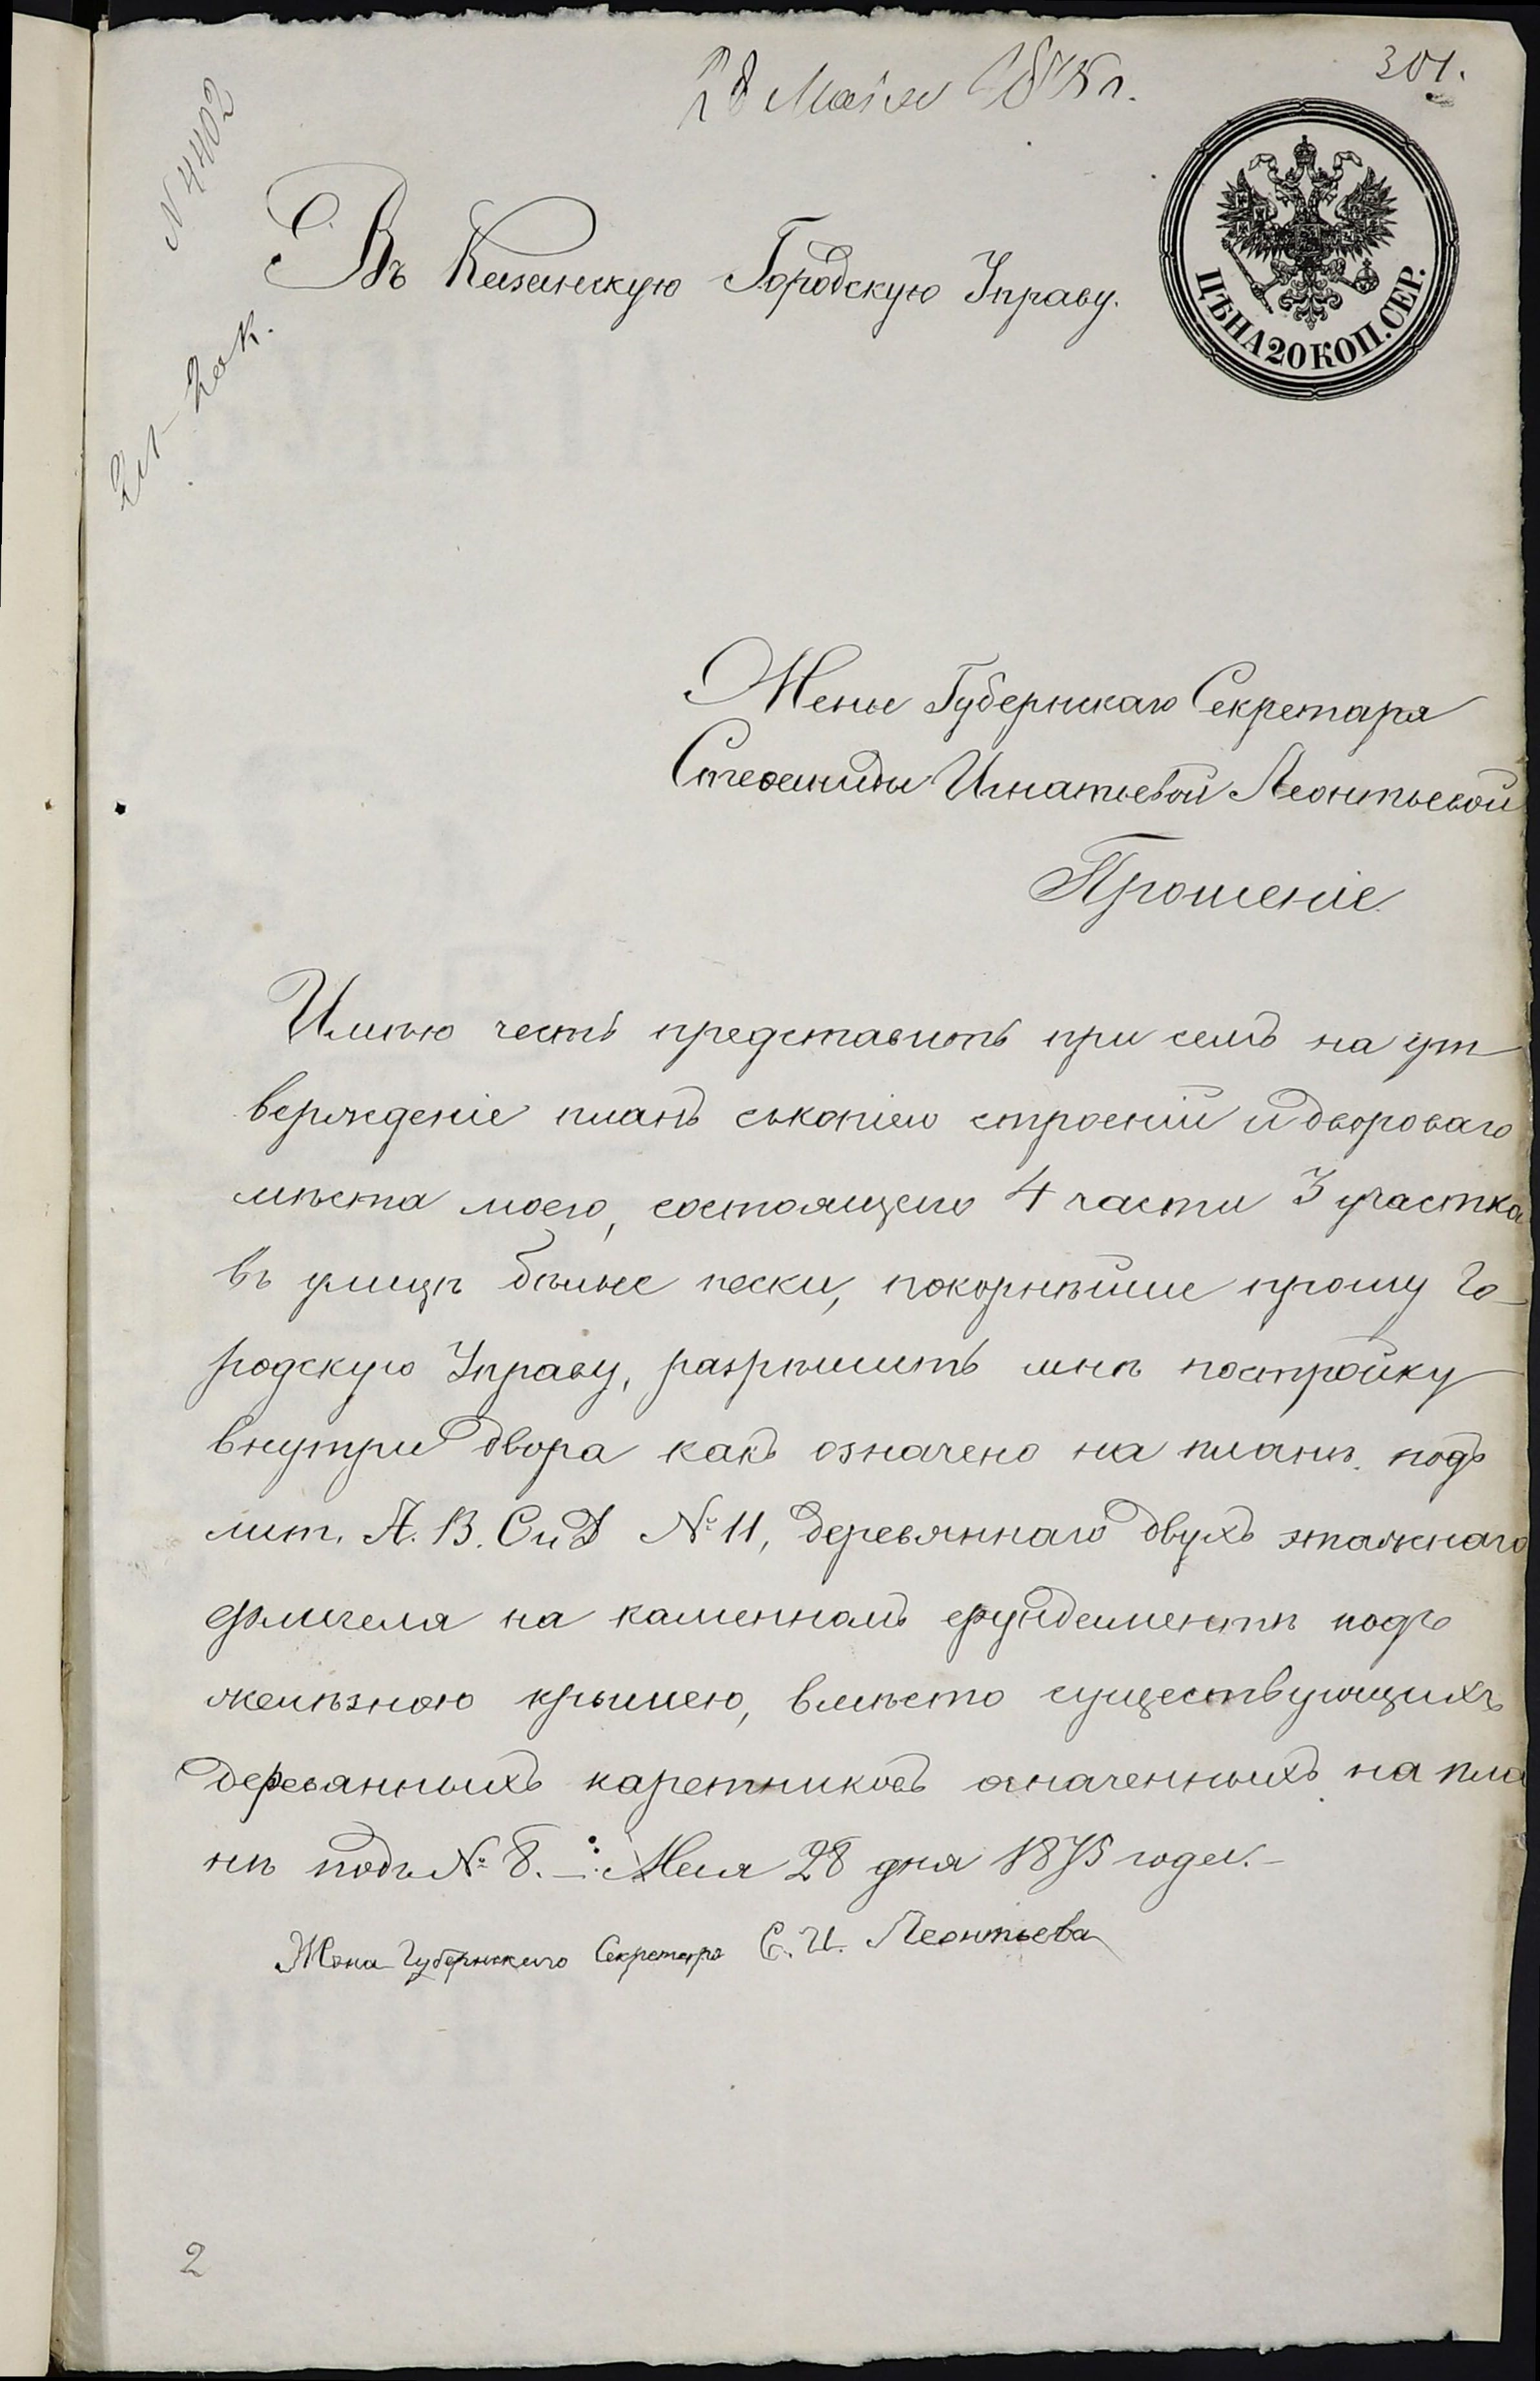 28 Мая 1875 г.
301.
N 4402
Въ Казанскую Городскую Управу.
ЦѢНА 20 КОП. СЕР.
20 к.
Жены Губернскаго Секретаря
Степаниды Игнатьевой Леонтьевой
Прошеніе
Имѣю честь представить при семъ на ут
вержденіе планъ съ копіею строеній и двороваго
мѣста моего, состоящего 4 части 3 участка
въ улицѣ бѣлые пески, покорнѣйше прошу Го-
родскую Управу, разрѣшить мнѣ постройку
внутри двора какъ означено на планѣ подъ
лит. А. В. С и D № 11, деревяннаго двухъ этажнаго
флигеля на каменномъ фундаментѣ подъ
желѣзною крышею, вмѣсто существующихъ
деревянныхъ каретниковъ означенныхъ на пла
нѣ подъ № 8. – Мая 28 дня 1875 года. –
Жена Губернскаго Секретаря С. И. Леонтьева
2